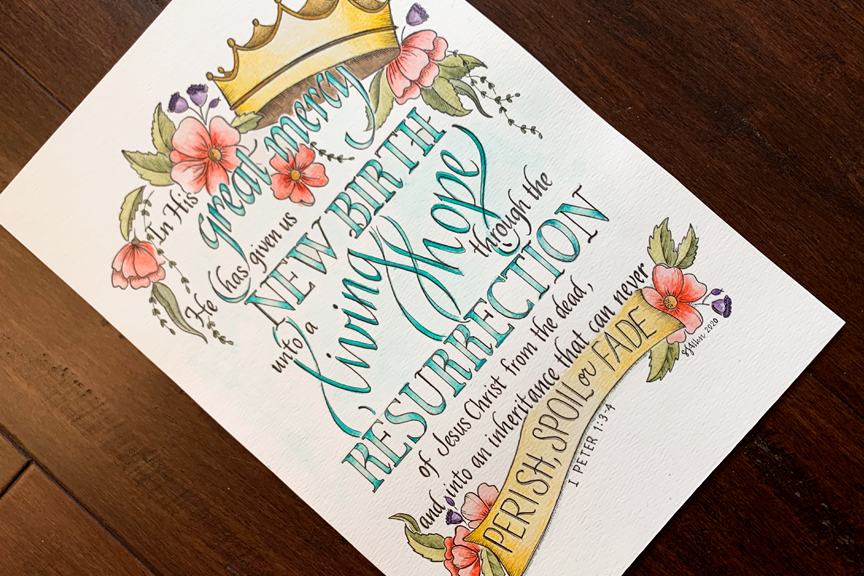 In His
great mercy
He has given us
NEW BIRTH
unto a
living hope
through the
RESURRECTION
of Jesus Christ from the dead,
and into an inheritance that can never
PERISH, SPOIL or FADE
I PETER 1:3-4
2020